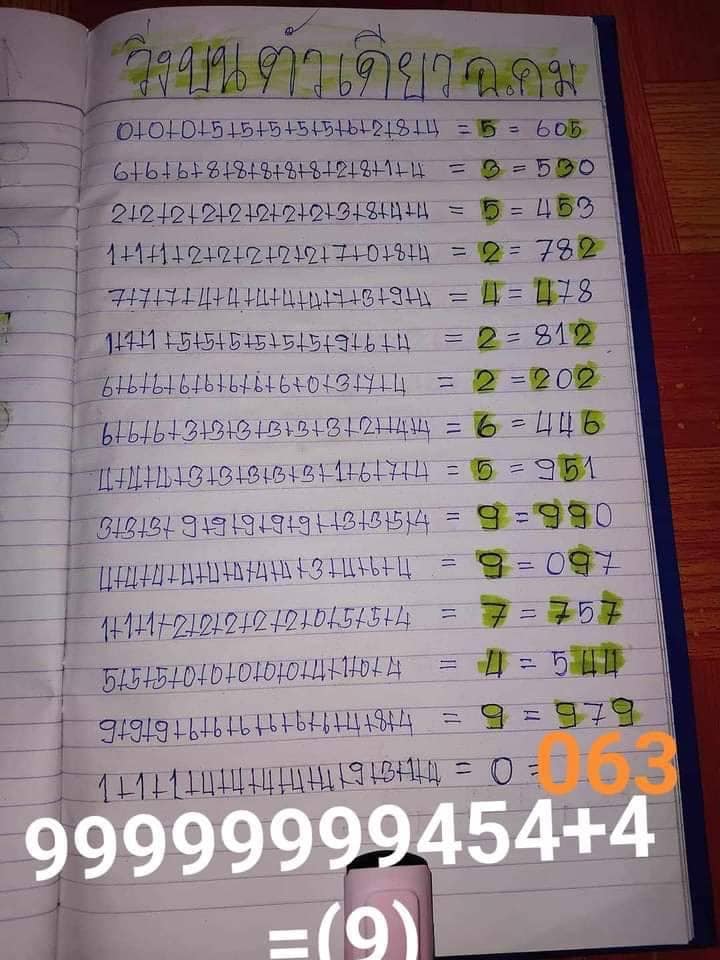 วิ่งบนตัวเดียว อ.คม
0+0+0+5+5+5+5+5+6+2+8+4 = 5 = 605
6+6+6+8+8+8+8+8+2+8+1+4 = 3 = 530
2+2+2+2+2+2+2+2+3+8+4+4 = 5 = 453
1+1+1+2+2+2+2+2+7+0+8+4 = 2 = 782
7+7+7+4+4+4+4+4+7+3+9+4 = 4 = 478
1+1+1+5+5+5+5+5+5+9+6+4 = 2 = 812
6+6+6+6+6+6+6+6+0+3+7+4 = 2 = 202
6+6+6+3+3+3+3+3+3+2+4+4 = 6 = 446
4+4+4+3+3+3+3+3+1+6+7+4 = 5 = 951
3+3+3+9+9+9+9+9+3+3+5+4 = 9 = 990
4+4+4+4+4+4+4+4+3+4+6+4 = 9 = 097
1+1+1+2+2+2+2+2+0+5+5+4 = 7 = 757
5+5+5+0+0+0+0+0+4+1+0+4 = 4 = 544
9+9+9+6+6+6+6+6+6+4+8+4 = 9 = 979
1+1+1+4+4+4+4+4+9+3+1+4 = 0 = 063
99999999454+4
=(9)